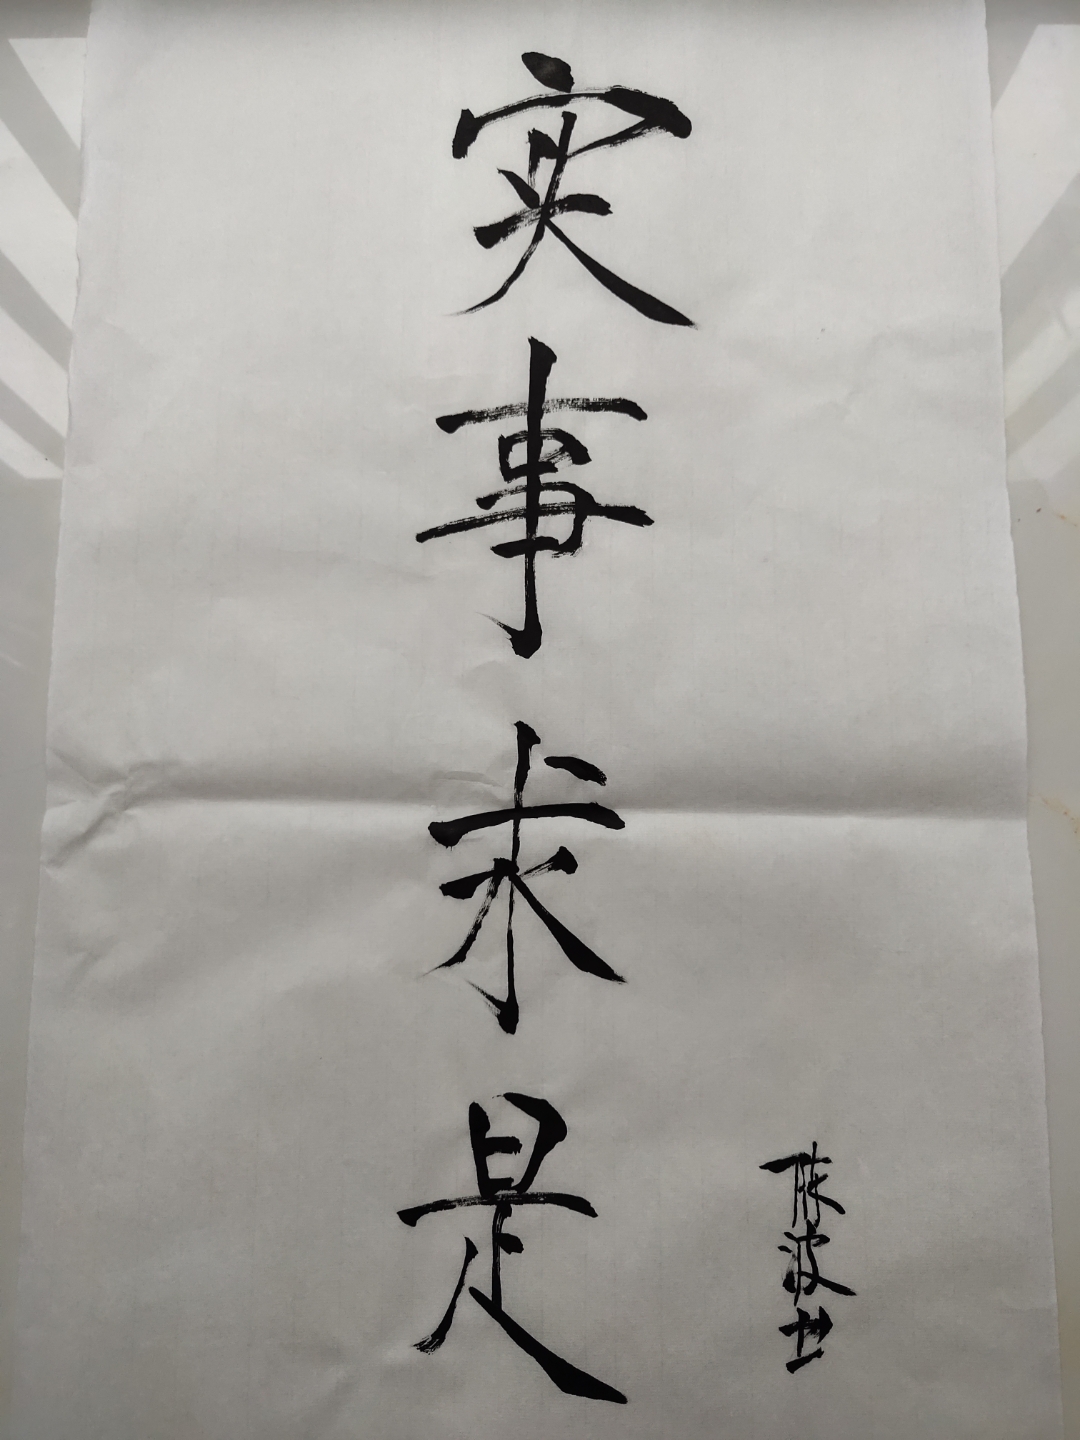 实事求是
陈波